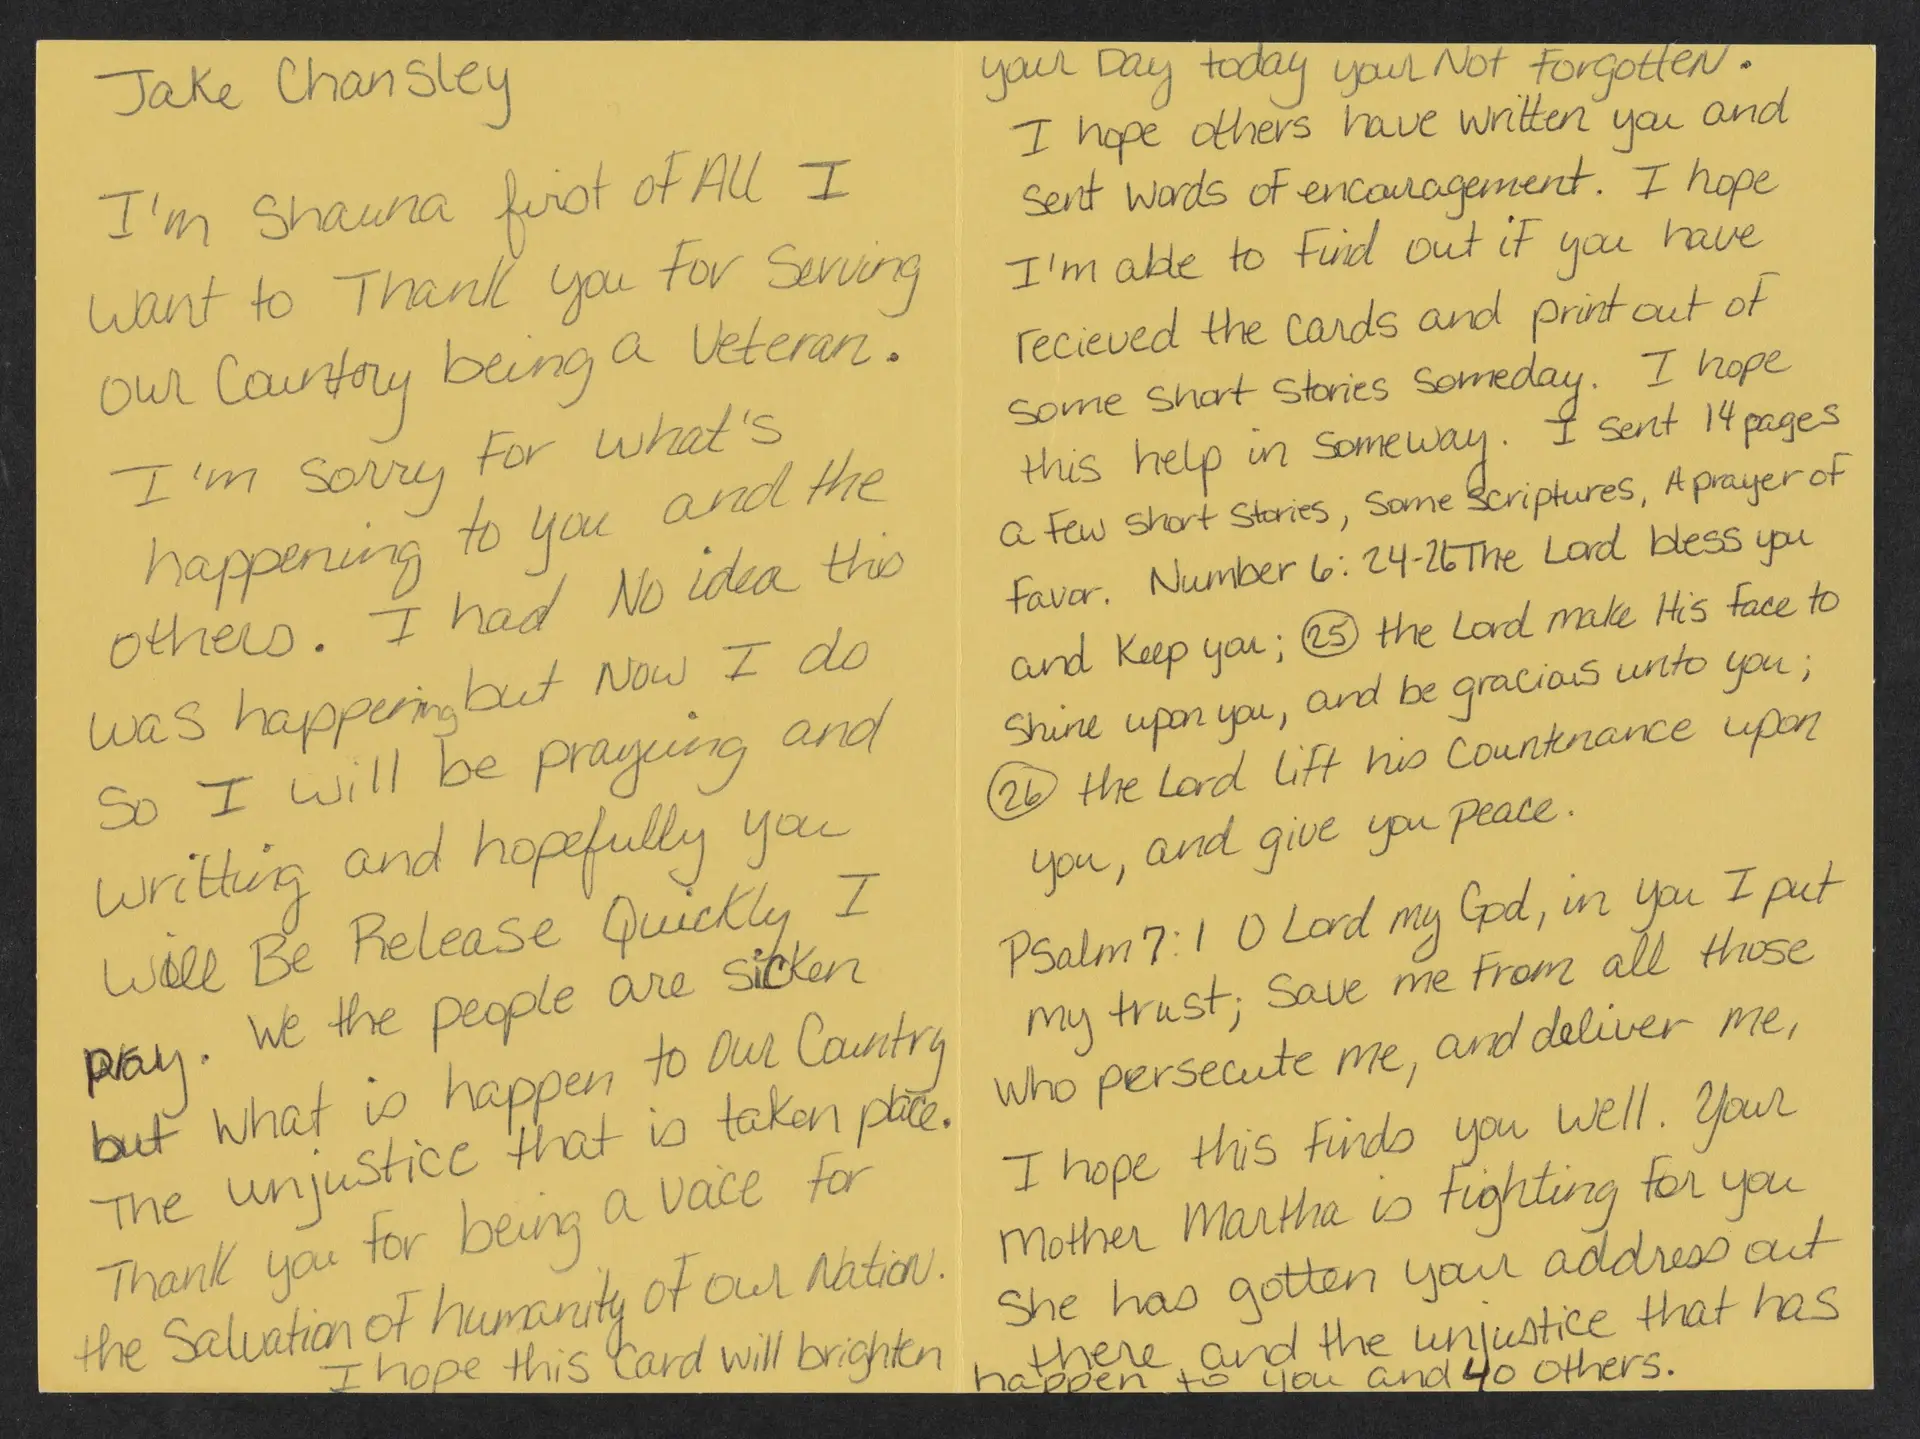 Jake Chansley
I'm Shauna first of All I
want to Thank you for Serving
our Country being a Veteran.
I'm sorry for what's
happening to you and the
others. I had No idea this
was happening but Now I do
So I will be praying and
writting and hopefully you
will Be Release Quickly I
pray. We the people are sicken
but what is happen to our Country
The unjustice that is taken place.
Thank you for being a voice for
the Salvation of humanity of our Nation.
I hope this Card will brighten
your Day today your Not Forgotten.
I hope others have written you and
sent words of encouragement. I hope
I'm able to find out if you have
recieved the cards and print out of
some short stories someday. I hope
this help in someway. I sent 14 pages
a few short stories, some scriptures, A prayer of
favor. Number 6: 24-26 The Lord bless you
and Keep you; 25 the Lord make His face to
shine upon you, and be gracious unto you;
26 the Lord lift his countenance upon
you, and give you peace.
Psalm 7:1 O Lord my God, in you I put
my trust; Save me From all those
who persecute me, and deliver me,
I hope this finds you well. Your
Mother Martha is fighting for you
She has gotten your address out
there and the unjustice that has
happen to you and 40 others.